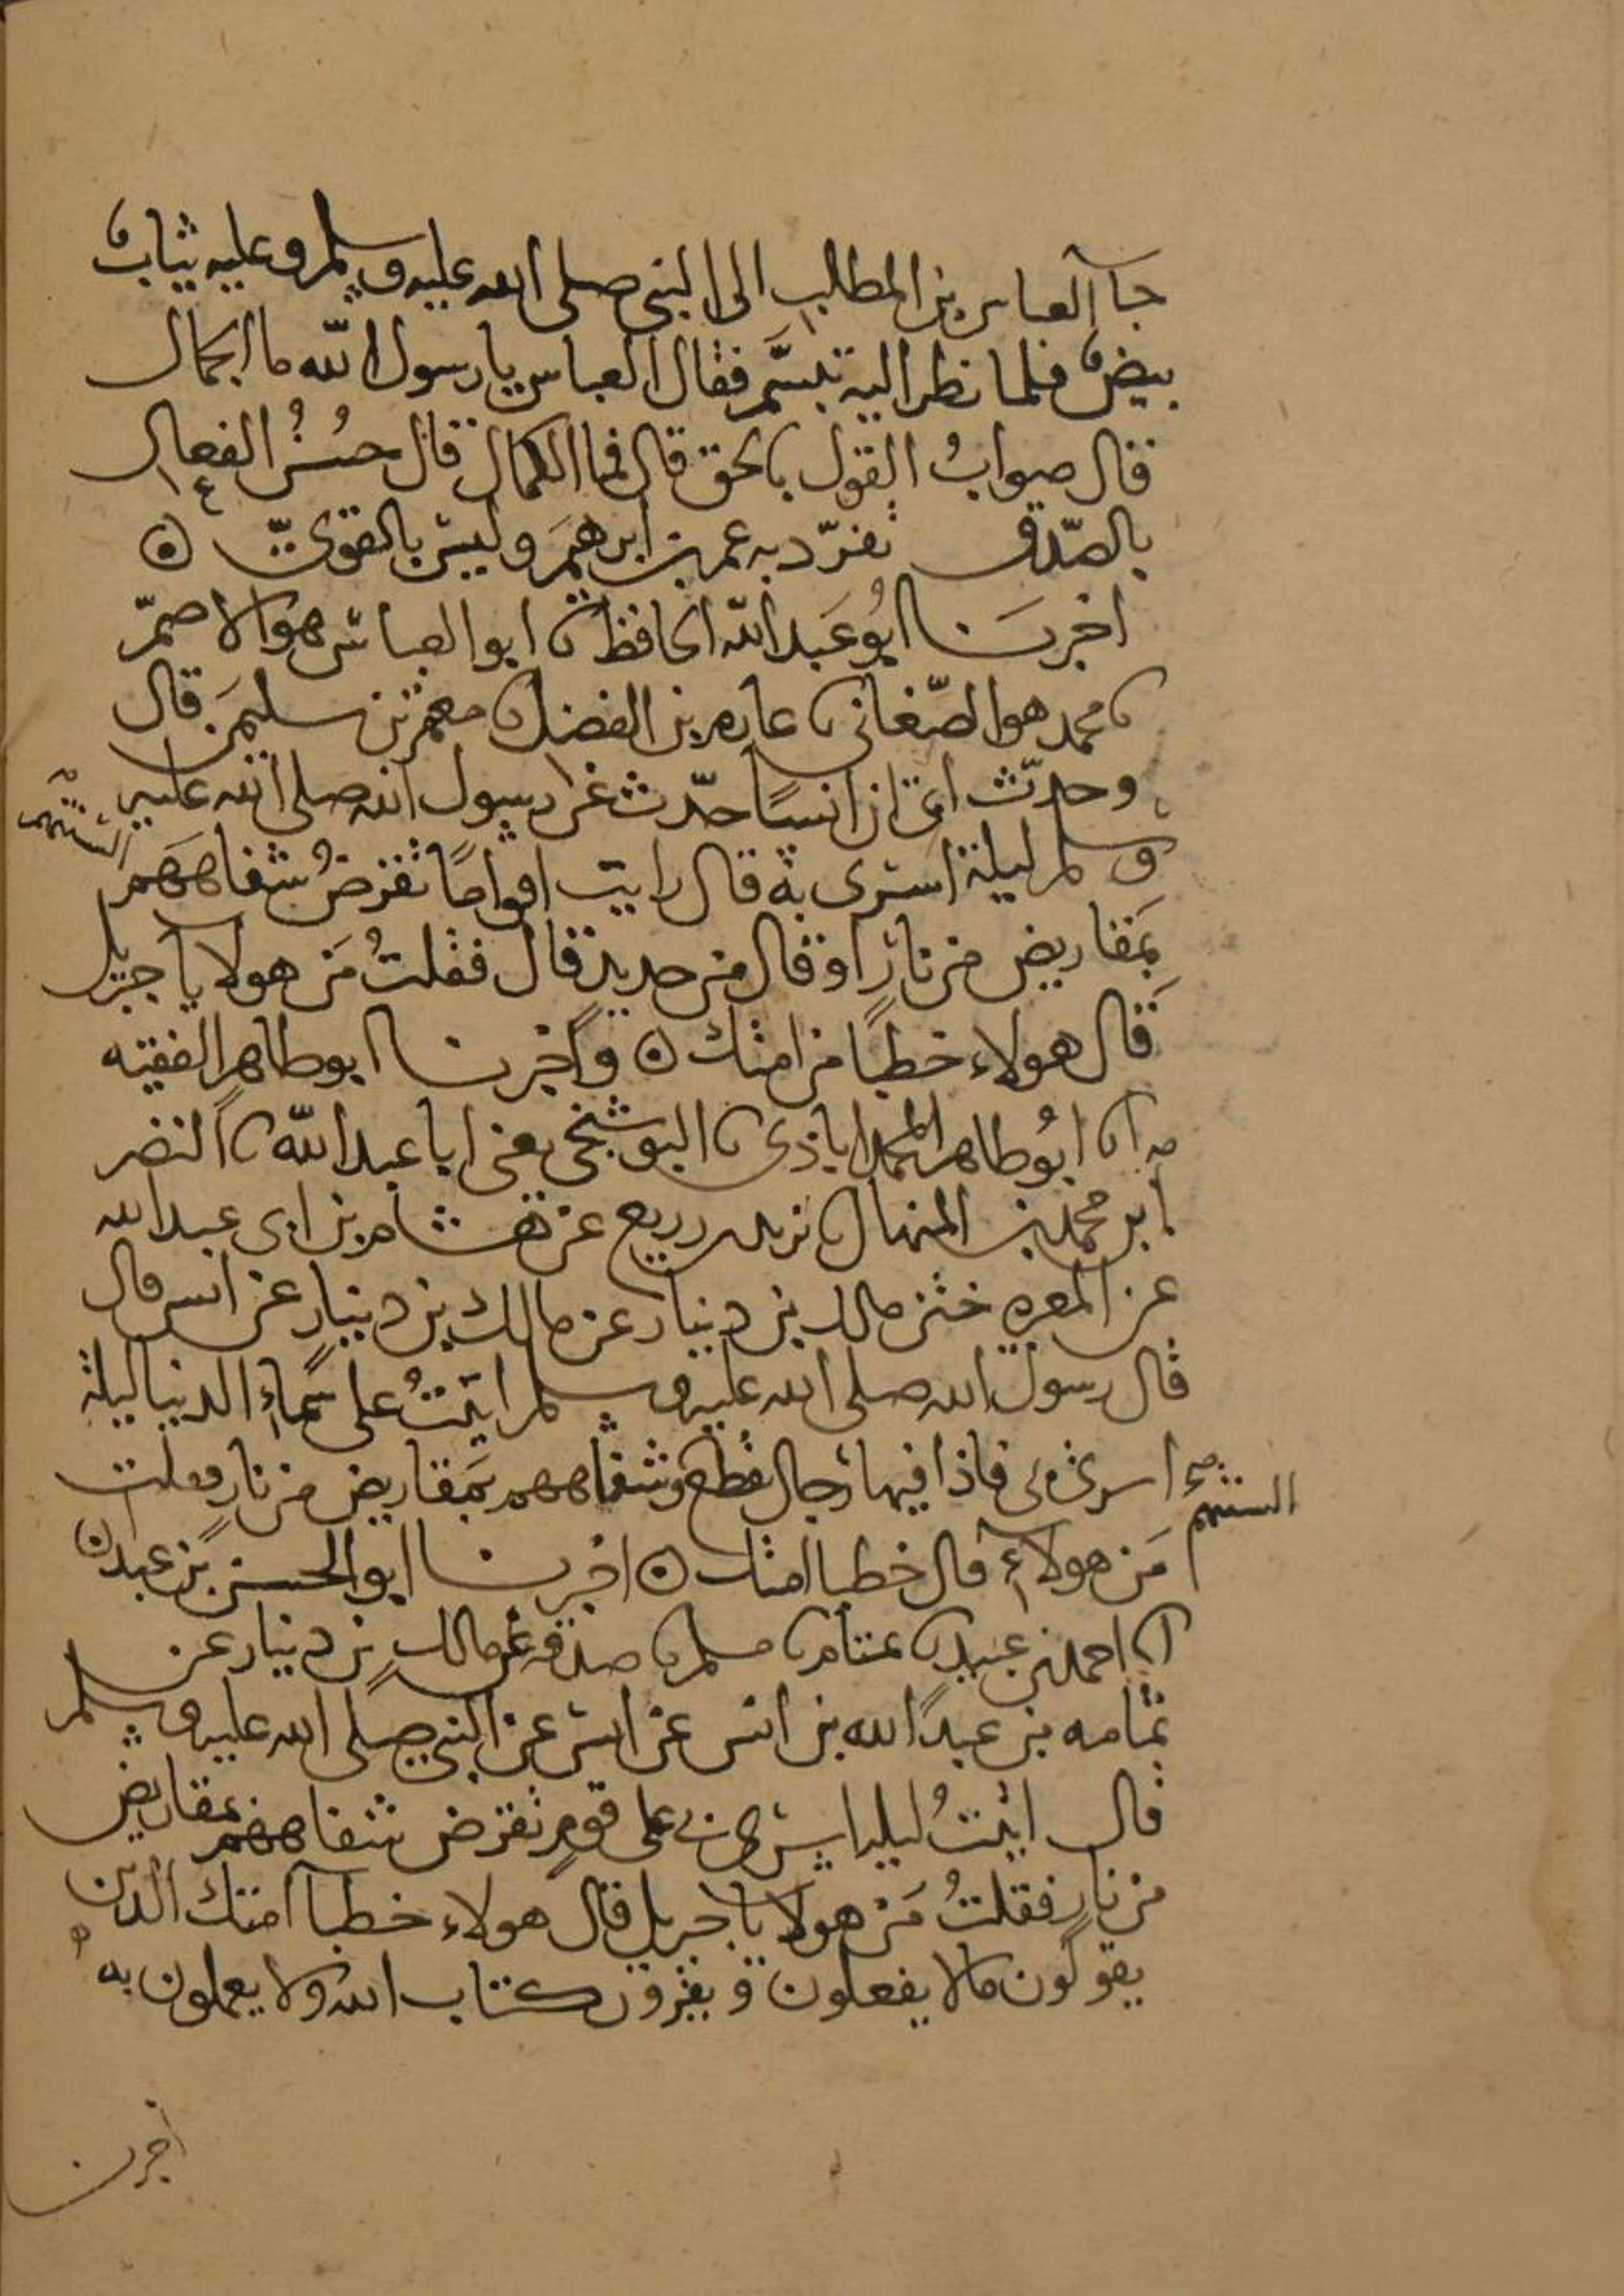 جا العباس بن المطلب الى النبي صلى الله عليه وسلم وعليه ثياب
بيض فلما نظر اليه تبسّم فقال العباس يا رسول الله ما الجمال
قال صواب القول بالحق قال فما الكمال قال حسن الفعال
بالصّدق تفرّد به عمر بن ابرهيم وليس بالقوىّ ⊙
اخبرنا ابو عبد الله الحافظ نا ابو العباس هو الاصمّ
نا محمد هو الصّغاني نا عارم بن الفضل نا معتمر بن سليمن قال
وحدّث ابى ان انسًا حدّث عن رسول الله صلى الله عليه
وسلم ليلة اسرى به قال رايت اقوامًا تقرض شفاههم
السنتهم
بمقاريض من نارٍ او قال من حديد قال فقلتُ مَن هولا يا جبريل
قال هولاء خطبا من امتك ⊙ واخبرنا ابو طاهر الفقيه
انا ابو طاهر المحمداباذى نا البوشنجي يعني ابا عبد الله نا النضر
محمد بن المنهال نا يزيد بن زريع عن هشام بن ابى عبد الله
عن المغيرة ختن مالك بن دينار عن مالك بن دينار عن انس قال
قال رسول الله صلى الله عليه وسلم اتيتُ على سماء الدنيا ليلة
اسرى بى فاذا فيها رجال تقطع وشفاههم بمقاريض من نار فقلت
السنتهم
مَن هولاء قال خطبا امتك ⊙ اخبرنا ابو الحسن بن عبدان
انا احمد بن عبيد نا تمتام نا مسلم نا صدقه عن مالك بن دينار عن
ثمامه بن عبد الله بن انس عن انس عن النبي صلى الله عليه وسلم
قال اتيتُ ليلة اسرى بى على قومٍ تقرض شفاههم بمقاريض
من نار فقلتُ مَن هولا يا جبريل قال هولاء خطبا امتك الذين
يقولون ما لا يفعلون ويقرؤن كتاب الله ولا يعملون به
اخبرنا